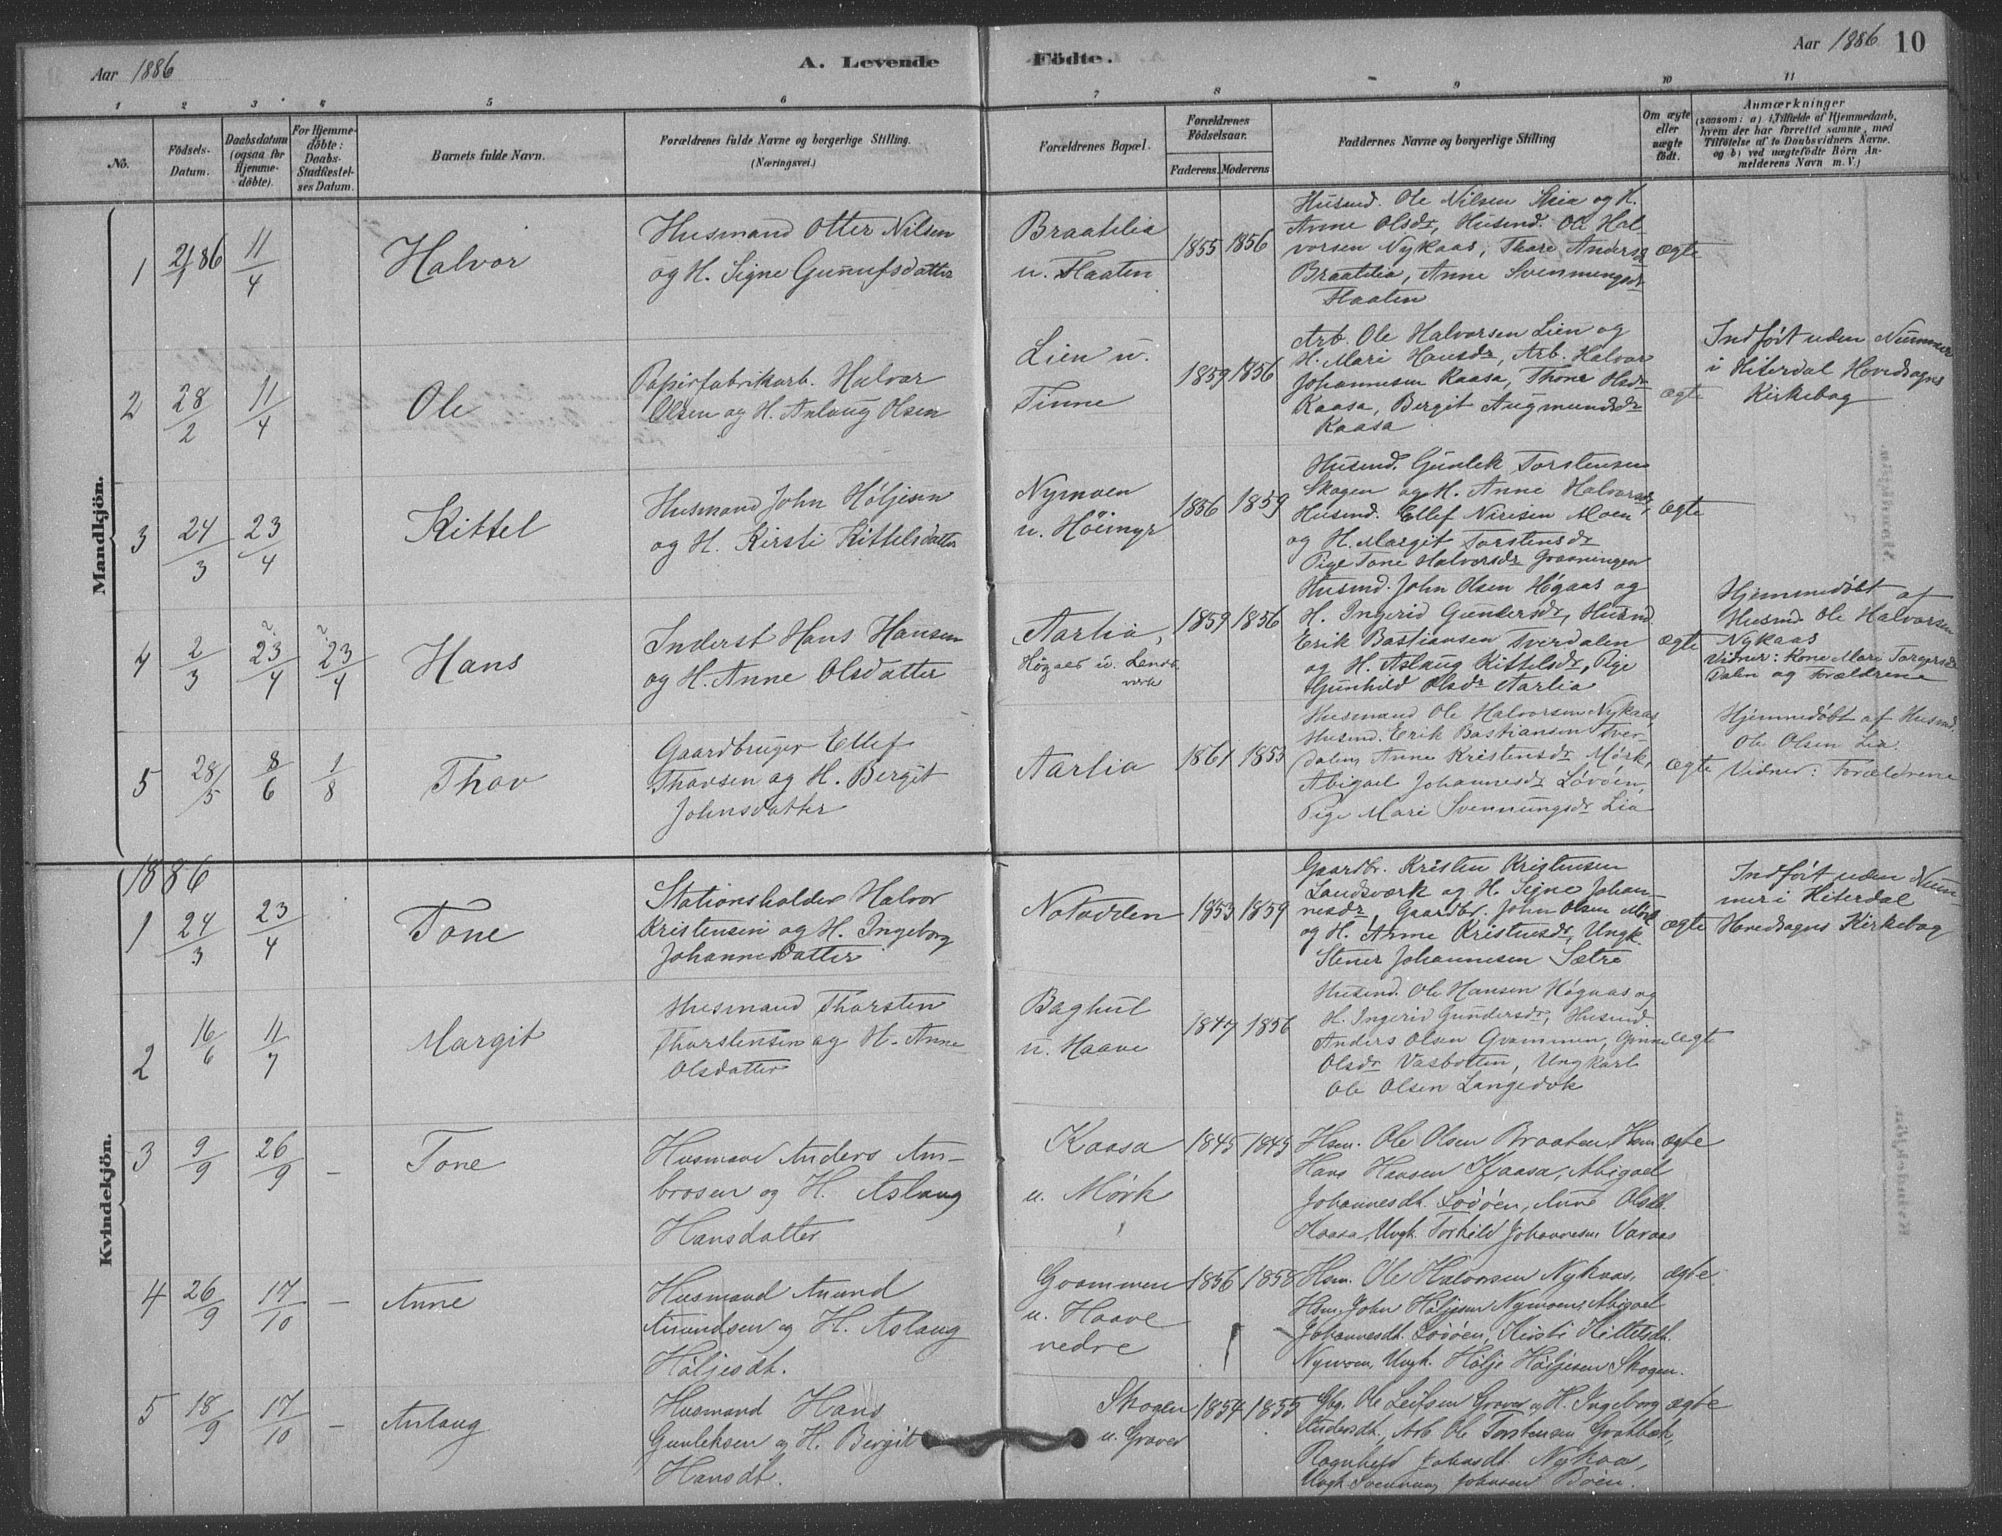 Aar 1886
A. Levende
Födte.
Aar 1886
10
1 2 3 4 5 6 7 8 9 10 11
No.
Födsels-
Datum.
Daabsdatum
(ogsaa for
Hjemme-
döbte).
For Hjemme-
döbte:
Daabs-
Stadfæstel-
ses Datum.
Barnets fulde Navn.
Forældrenes fulde Navne og borgerlige Stilling.
(Næringsvei.)
Forældrenes Bopæl.
Forældrenes
Födselsaar.
Faderens. Moderens
Faddernes Navne og borgerlige Stilling
Om ægte
eller
uægte
födt.
Anmærkninger
(saasom: a) i Tilfælde af Hjemmedaab,
hvem der har forrettet samme, med
Tilföielse af to Daabsvidners Navne.
og b) ved uægtefödte Börn An-
melderens Navn m. V.)
Mandkjön.
1
2/1 86
11/4
Halvor
Husmand Otter Nilsen
og H. Signe Gunufsdatter
Braatilia
u. Flaaten
1855 1856
Husmd. Ole Nilsen Lia og H.
Anne Olsdr, Husmd. Ole Hal-
vorsen Nykaas, Thore Andersdr
Braatilia, Anne Svenningsdr
Flaaten
ægte
2
28/2
11/4
Ole
Papirfabrikarb. Halvor
Olsen og H. Anlaug Olsen
Lien u.
Tinne
1859 1856
Arb. Ole Halvorsen Lien og
H. Mari Hansdr, Arb. Halvor
Johannesen Kaasa, Thone Olsdr
Kaasa, Bergit Augmundsdr
Kaasa
ægte
Indført uden Nummer
i Hiterdal Hovedsogns
Kirkebog
3
24/3
23/4
Kittel
Husmand John Höljesen
og H. Kirsti Kittelsdatter
Nymoen
u. Höimyr
1856 1859
Husmd. Gunlek Torstensen
Skogen og H. Anne Halvorsdr,
Husmd. Ellef Nirisen Moen
og H. Margit Torstensdr
Pige Tone Halvorsdr Graaningen
ægte
4
2/3
?
23/4
?
23/4
Hans
Inderst Hans Hansen
og H. Anne Olsdatter
Aarlia,
Høgaas u. Lands-
værk
1859 1856
Husmd. John Olsen Høgaas og
H. Ingerid Gundersdr, Husmd
Erik Bastiansen Sverdalen
og H. Aslaug Kittelsdr, Pige
Gunhild Olsdr Aarlia
ægte
Hjemmedøbt af
Husmd Ole Halvorsen
Nykaas
Vidner: Kone Mari Torgersdr
Dalen og Forældrene
5
28/5
8/6
1/8
Thov
Gaardbruger Ellef
Thovsen og H. Bergit
Johnsdatter
Aarlia
1861 1853
Husmand Ole Halvorsen Nykaas,
Husmd. Erik Bastiansen Sver-
dalen, Anne Kristensdr Mörk,
Abigael Johannesdr Løvöen,
Pige Mari Svennungsdr Lia
ægte
Hjemmedøbt af Husmd.
Ole Olsen Lia.
Vidner: Forældrene
Kvindekjön.
1886
1
24/3
23/4
Tone
Stationsholder Halvor
Kristensen og H. Ingeborg
Johannesdatter
Notodden
1853 1859
Gaardbr. Kristen Kristensen
Landsværk og H. Signe Johan-
nesdr, Gaardbr. John Olsen Mörk
og H. Anne Kristensdr, Ungk.
Stener Johannesen Sætre
ægte
Indført uden Num-
mer i Hiterdal
Hovedsogns Kirkebog
2
16/6
11/7
Margit
Husmand Thorsten
Thorstensen og H. Anne
Olsdatter
Baghul
u. Haave
1847 1856
Husmd. Ole Hansen Høgaas og
H. Ingerid Gundersdr, Husmd.
Anders Olsen Gvammen, Gunne
Olsdr Vasbotten, Ungkarl
Ole Olsen Langedok
ægte
3
9/9
26/9
–
Tone
Husmand Anders Am-
brosen og H. Aslaug
Hansdatter
Kaasa
u. Mörk
1845 1843
Hsm. Ole Olsen Braaten, Hsm
Hans Hansen Kaasa, Abigael
Johannesdt. Løvöen, Anne Olsdt.
Kaasa, Ungk. Torkild Johannesen Varaas
ægte
4
26/9
17/10
–
Anne
Husmand Amund
Amundsen og H. Aslaug
Höljesdt.
Gvammen
u. Haave
nedre
1856 1858
Hsm. Ole Halvorsen Nykaas,
Hsm. John Höljesen Nymoen, Abigael
Johannesdt. Løvöen, Kirsti Kittelsdt.
Nymoen, Ungk. Hölje Höljesen Skogen.
ægte
5
18/9
17/10
–
Anlaug
Husmand Hans
Gunleksen og H. Bergit
Hansdt.
Skogen
u. Graver
1854 1855
Gbg. Ole Leifsen Graver og H. Ingeborg
Andersdt, Arb. Ole Torstensen Grötbæk,
Ragnhild Johnsdt Nykaas,
Ungk. Svennung Johnsen Böen.
ægte